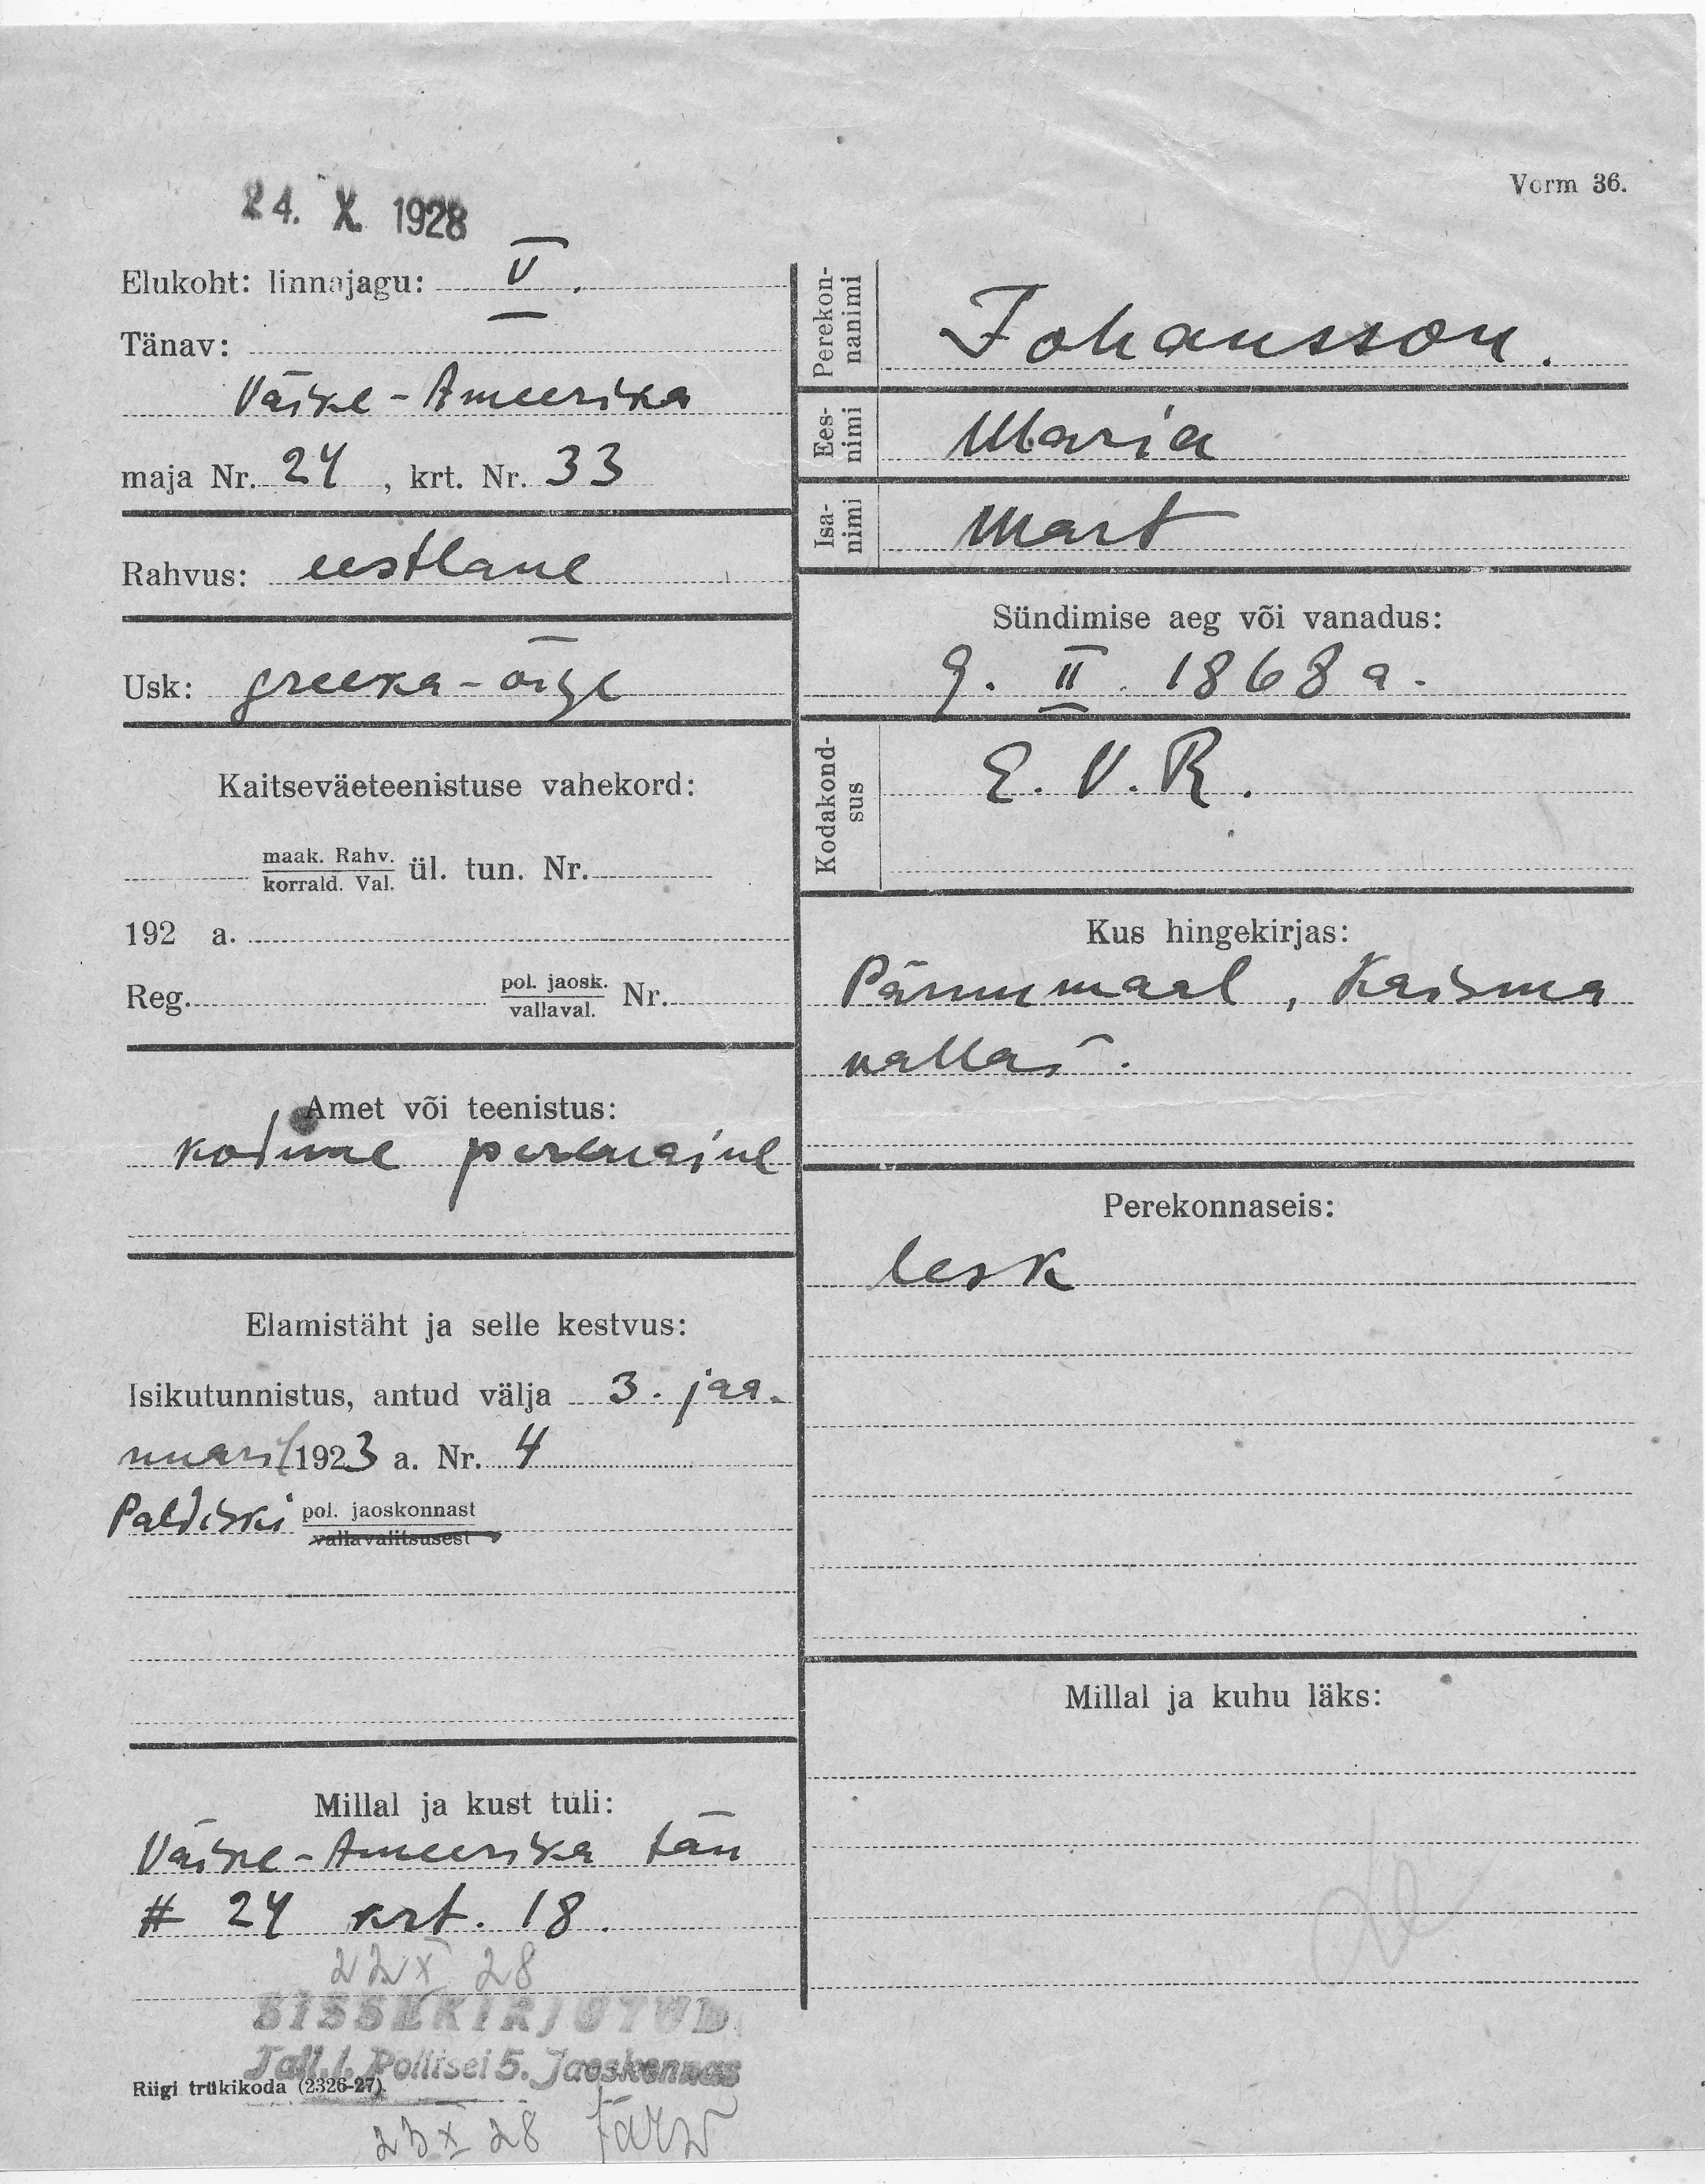 24. X. 1928
Vorm 36.
Elukoht: linnajagu: V.
Tänav:
Väike-Ameerika
maja Nr. 24, krt. Nr. 33
Rahvus: eestlane
Usk: greeka-õige
Kaitseväeteenistuse vahekord:
maak. Rahv.
korrald. Val. ül. tun. Nr.
192 a.
Reg. pol. jaosk. Nr.
vallaval.
Amet või teenistus:
kodune perenaine
Elamistäht ja selle kestvus:
Isikutunnistus, antud välja 3. jaa-
nuaril 1923 a. Nr. 4
Paldiski pol. jaoskonnast
vallavalitsusest
Millal ja kust tuli:
Väike-Ameerika tän
# 24 krt. 18.
22 X 28
SISSEKIRJUTUD
Tall. l. Politsei 5. Jaoskonnas
Riigi trükikoda (2326-27).
23 X 28
Perekon-
nanimi
Johansson.
Ees-
nimi
Maria
Isa-
nimi
Mart
Sündimise aeg või vanadus:
9. II. 1868 a.
Kodakond-
sus
E. V. R.
Kus hingekirjas:
Pärnumaal, Kaisma
vallas.
Perekonnaseis:
lesk
Millal ja kuhu läks: